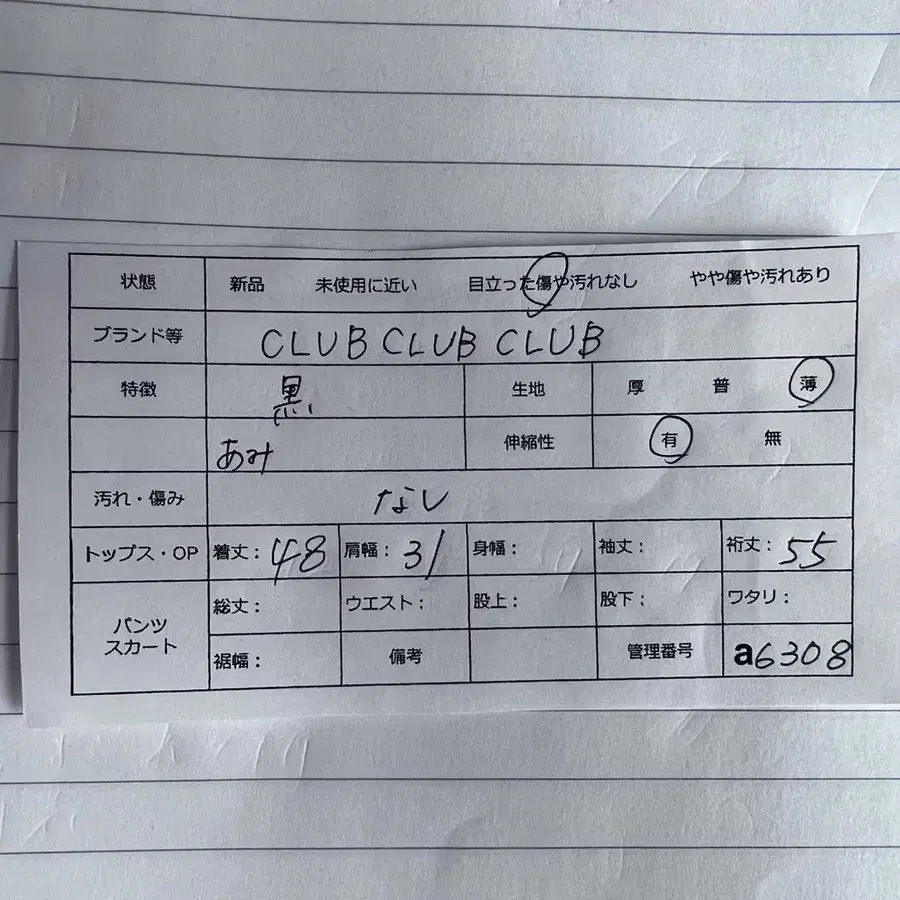 状態 新品 未使用に近い 目立った傷や汚れなし やや傷や汚れあり
ブランド等 CLUB CLUB CLUB
特徴 黒 生地 厚 普 薄
あみ 伸縮性 有 無
汚れ・傷み なし
トップス・OP 着丈：48 肩幅：31 身幅： 袖丈： 裄丈：55
パンツ スカート 総丈： ウエスト： 股上： 股下： ワタリ：
裾幅： 備考 管理番号 a6308